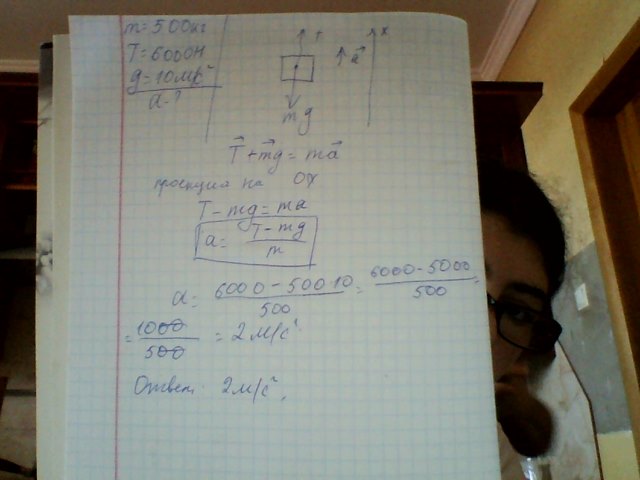 m = 500кг
T = 6000Н
g = 10м/с²
a - ?
T
x
a⃗
mg
T⃗ + m⃗g = ma⃗
проекция на OX
T - mg = ma
a = (T - mg)/m
a = (6000 - 500·10)/500 = (6000 - 5000)/500 =
= 1000/500 = 2 м/с²
Ответ: 2м/с².